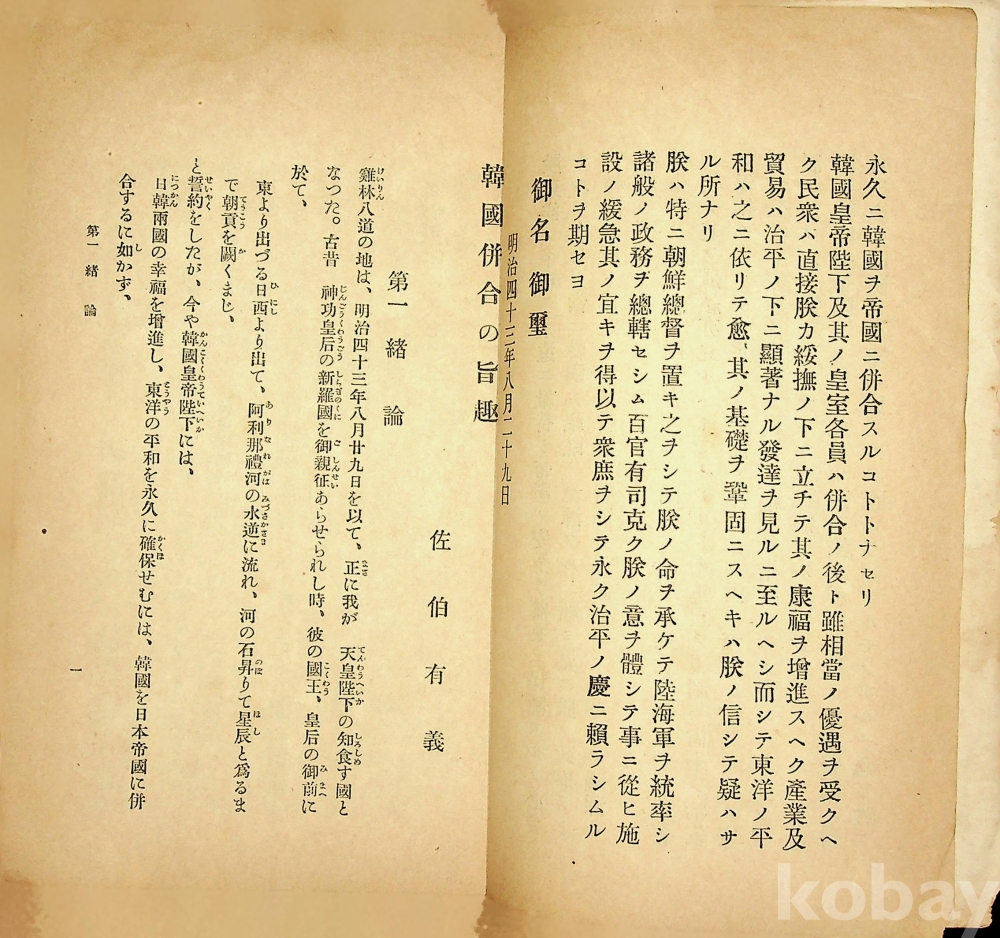 永久ニ韓國ヲ帝國ニ併合スルコトトナセリ
韓國皇帝陛下及其ノ皇室各員ハ併合ノ後ト雖相當ノ優遇ヲ受クヘ
ク民衆ハ直接朕カ綏撫ノ下ニ立チテ其ノ康福ヲ增進スヘク産業及
貿易ハ治平ノ下ニ顯著ナル發達ヲ見ルニ至ルヘシ而シテ東洋ノ平
和ハ之ニ依リテ愈〻其ノ基礎ヲ鞏固ニスヘキハ朕ノ信シテ疑ハサ
ル所ナリ
朕ハ特ニ朝鮮總督ヲ置キ之ヲシテ朕ノ命ヲ承ケテ陸海軍ヲ統率シ
諸般ノ政務ヲ總轄セシム百官有司克ク朕ノ意ヲ體シテ事ニ從ヒ施
設ノ緩急其ノ宜キヲ得以テ衆庶ヲシテ永ク治平ノ慶ニ賴ラシムル
コトヲ期セヨ
御名御璽
明治四十三年八月二十九日
韓國併合の旨趣
佐伯有義
第一緒論
雞林八道の地は、明治四十三年八月廿九日を以て、正に我が 天皇陛下の知食す國と
なつた。古昔 神功皇后の新羅國を御親征あらせられし時、彼の國王、皇后の御前に
於て、
東より出づる日西より出て、阿利那禮河の水逆に流れ、河の石昇りて星辰と爲るま
で朝貢を闕くまじ、
と誓約をしたが、今や韓國皇帝陛下には、
日韓兩國の幸福を增進し、東洋の平和を永久に確保せむには、韓國を日本帝國に併
合するに如かず、
第一 緒論
一
kobay